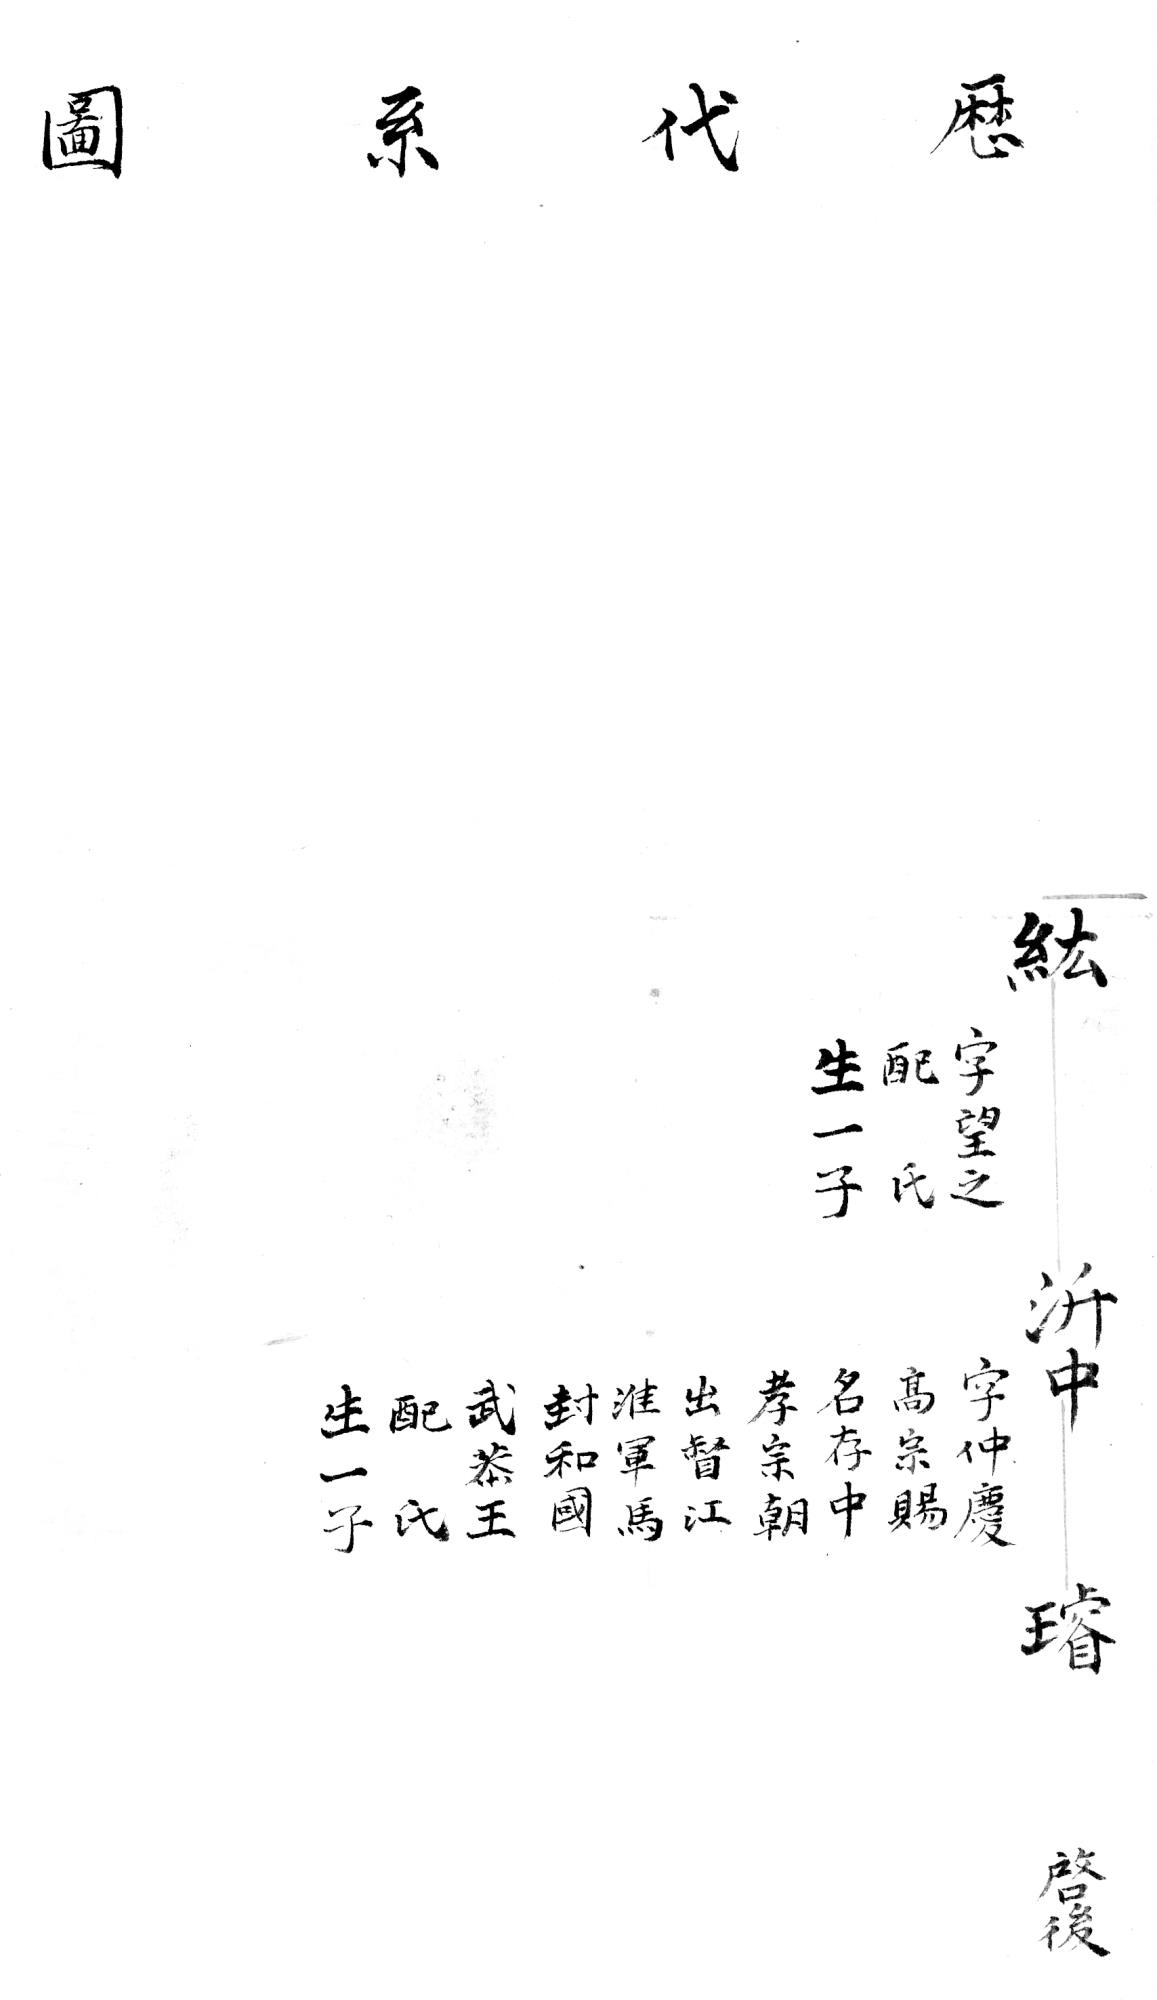 歷代系圖
紘
字望之
配 氏
生一子
沂中
字仲慶
高宗賜
名存中
孝宗朝
出督江
淮軍馬
封和國
武恭王
配 氏
生一子
璿
啓後